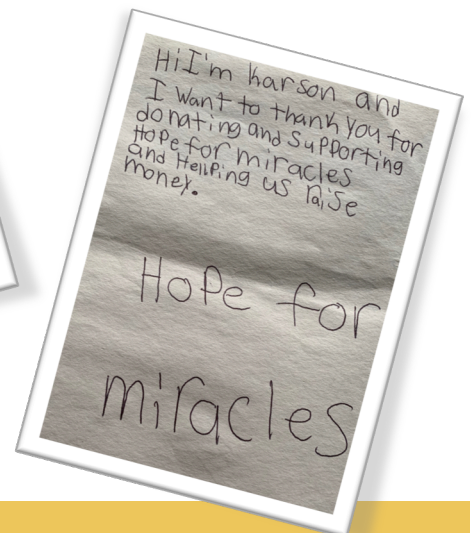 Hi I'm karson and
I want to thank you for
donating and supporting
Hope for miracles
and Hellping us raise
money.
Hope for
miracles